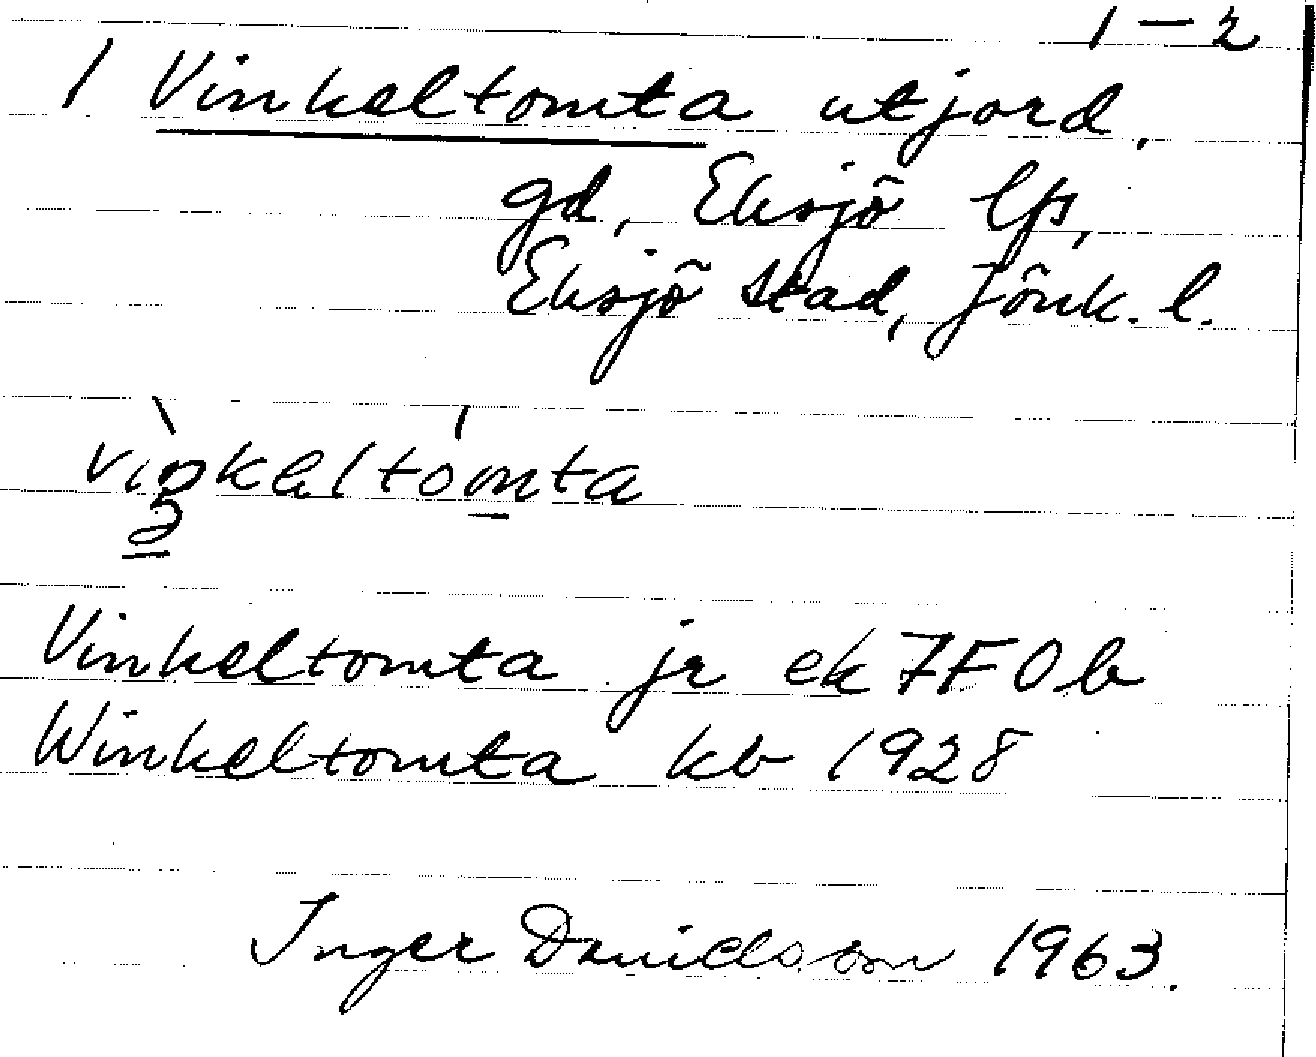 1-2
1 Vinkeltomta utjord,
gd, Eksjö lfs,
Eksjö stad, Jönk. l.
Vinkeltomta jr ek 7F0b
Winkeltomta kb 1928
Inger Danielsson 1963.